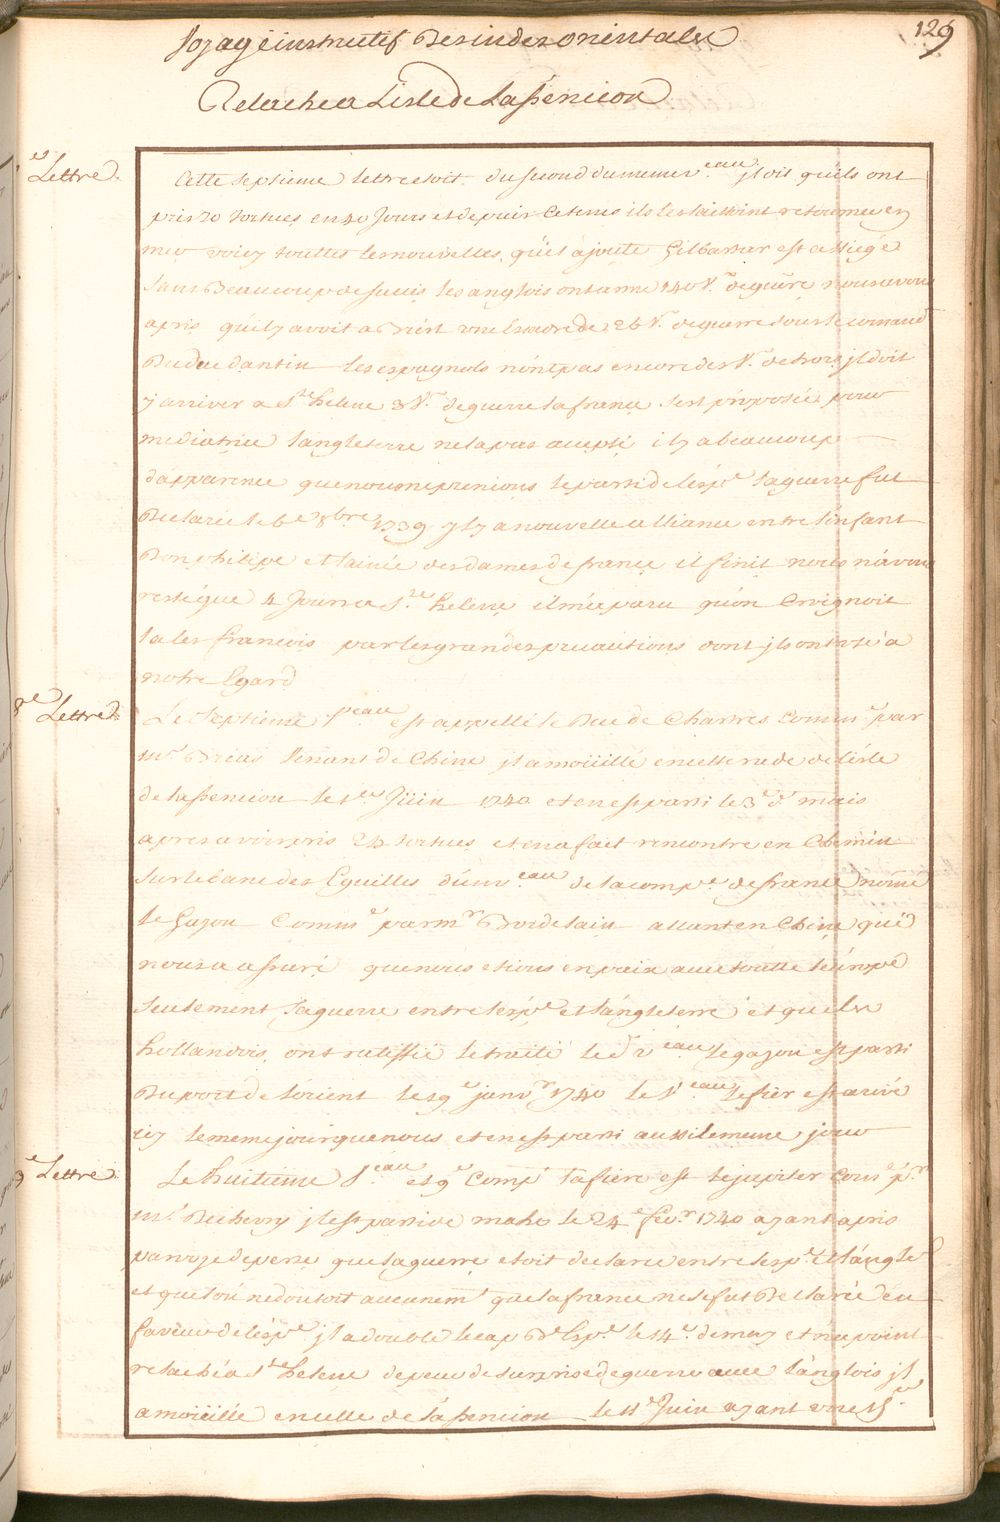 129
Voyage instructif Des indes orientales
Relache a L'isle de L'assencion
Lettre
Cette septieme lettre etoit du second du meme v.eau il dit qu'ils ont
pris 20 tortues en 40 Jours et depuis ce tems ils les laissoint retourner en
mer voicy touttes les nouvelles qu'il ajoute Gilbartar est assiegé
sans Beaucoup de succés les anglois ont armé 140 V.x de guerre nous avons
apris qu'il y avoit a Brest une Escadre de 26 V.x de guerre sous le comand.t
Du duc dantin les espagnols n'ont pas encore des V.x dehors il doit
y arriver a S.te helene 3 V.x de guerre la france s'est proposée pour
mediatrice l'angleterre ne la pas accepté il y a beaucoup
d'apparence que nous ne prenions le parti de l'esp.e la guerre fut
Declarée le 6e 8bre 1739 il y a nouvelle alliance entre l'infant
Don philipe et l'ainée des dames de france il finit nous n'avons
resté que 4 Jours a S.te helene il m'a paru qu'on craignoit
la les francois par les grandes precautions dont ils ont usé a
notre Egard
8e Lettre
Le Septieme V.eau est appellé le Duc de Chartres Comm.é par
M.r Drias Venant de Chine il a moüillé en cette rade de l'isle
de l'assencion le 1er Jüin 1740 et en est parti le 3e d.u mois
apres avoir pris 24 tortues et en a fait rencontre en Chemin
sur le banc des Eguilles d'un v.eau de la comp.e de france nomé
le Gazou Comm.é par M.r Bordelain allant en Chine qui
nous a assuré que nous etions en paix avec toutte l'europe
seulement la guerre entre l'esp.e et l'angleterre et que les
hollandois ont ratiffié le traité le d.t v.eau le gazou est parti
Du port de l'orient le 19e janv.r 1740 le V.eau le fier est arivé
icy le meme jour que nous et en est parti aussi le meme jour
9e Lettre
Le huitieme V.eau et 9e Compé la fiere est le jupiter Com.é p.r
M.r Duchevry il est parti de mahé le 24e fev.r 1740 ayant apris
par voye de perse que la guerre etoit declarée entre l'esp.e et l'anglet.e
et que l'on ne doutoit aucunem.t que la france ne se fut Declarée en
faveur de l'esp.e il a doublé le cap D.e Esp.ce le 14e de may et n'a point
relaché a S.te helene de peur de surprise de guerre avec l'anglois il
a moüillé en celle de l'assencion le 11e Juin ayant vu le